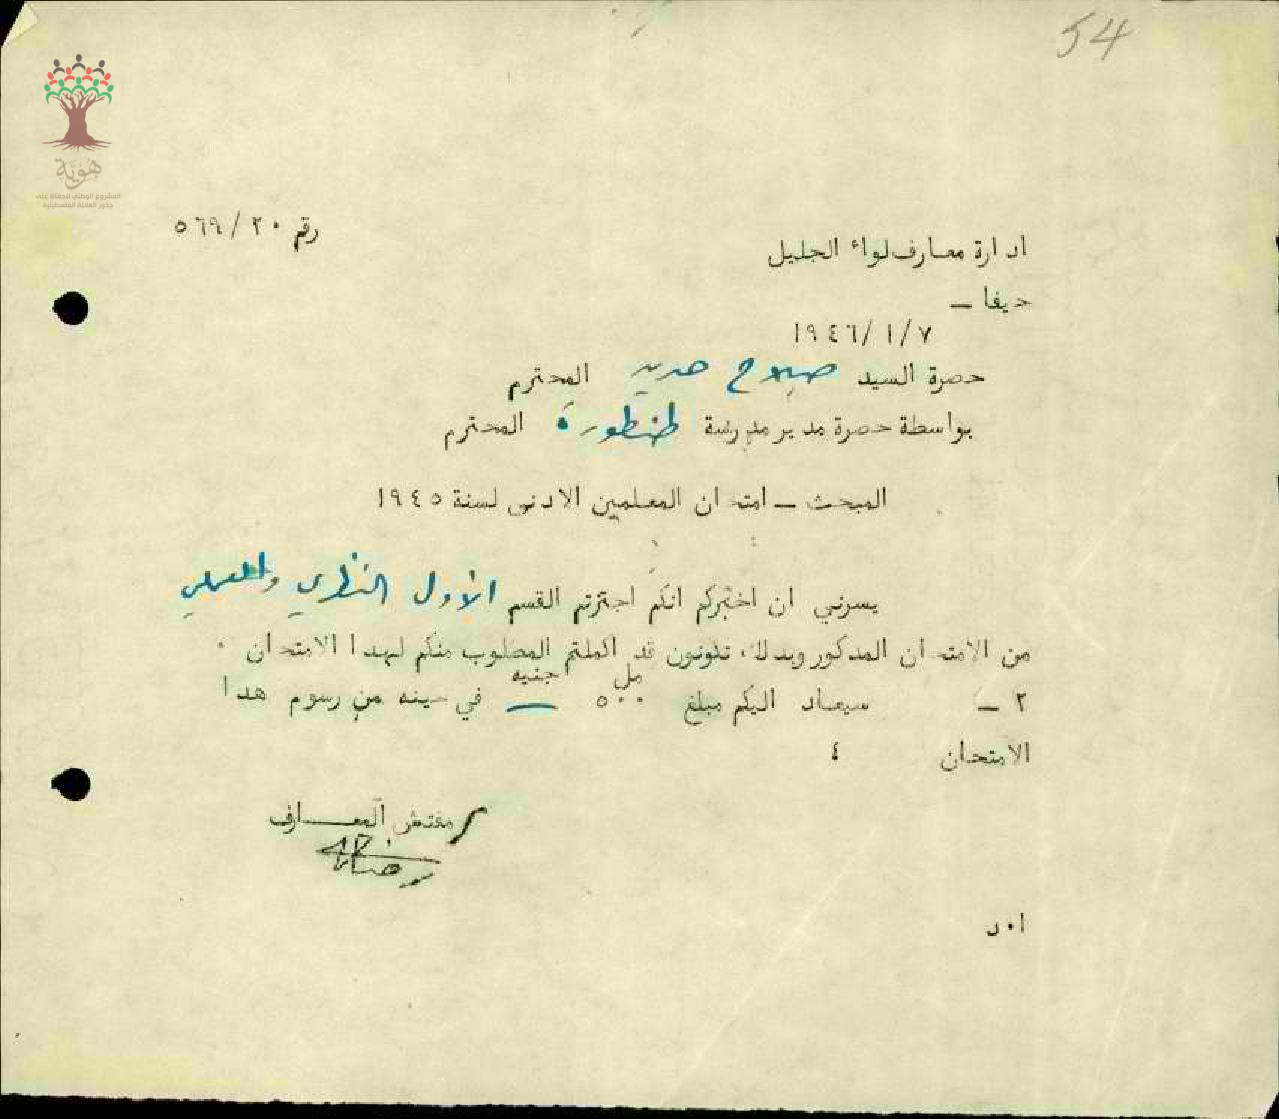 54
هُوِيَّة
المشروع الوطني للحفاظ على
جذور العائلة الفلسطينية
رقم ٢٠/٥٦٩
ادارة معارف لواء الجليل
حيفا _
١٩٤٦/١/٧
حضرة السيد صلاح المحترم
بواسطة حضرة مدير مدرسة طنطورة المحترم
المبحث _ امتحان المعلمين الادنى لسنة ١٩٤٥
يسرني ان اخبركم انكم اجتزتم القسم الأول النظري والعملي
من الامتحان المذكور وبذلك تكونون قد اكملتم المطلوب منكم لهذا الامتحان .
مل جنيه
٢ _ سيعاد اليكم مبلغ ٥٠٠ — في حينه من رسوم هذا
الامتحان ٤
مفتش المعارف
ا٠د